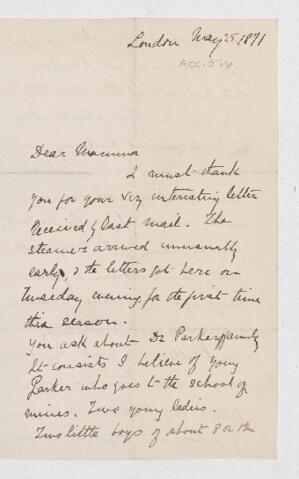 London May 25, 1871
ACC. 526
Dear Mamma
I must thank
you for your vry interesting letter
received by last mail. The
steamer arrived unusually
early, & the letters got here on
Tuesday evening for the first time
this season.
You ask about Dr Parkers family
It consists I believe of young
Parker who goes to the school of
mines. Two young ladies.
Two little boys of about 8 or 12